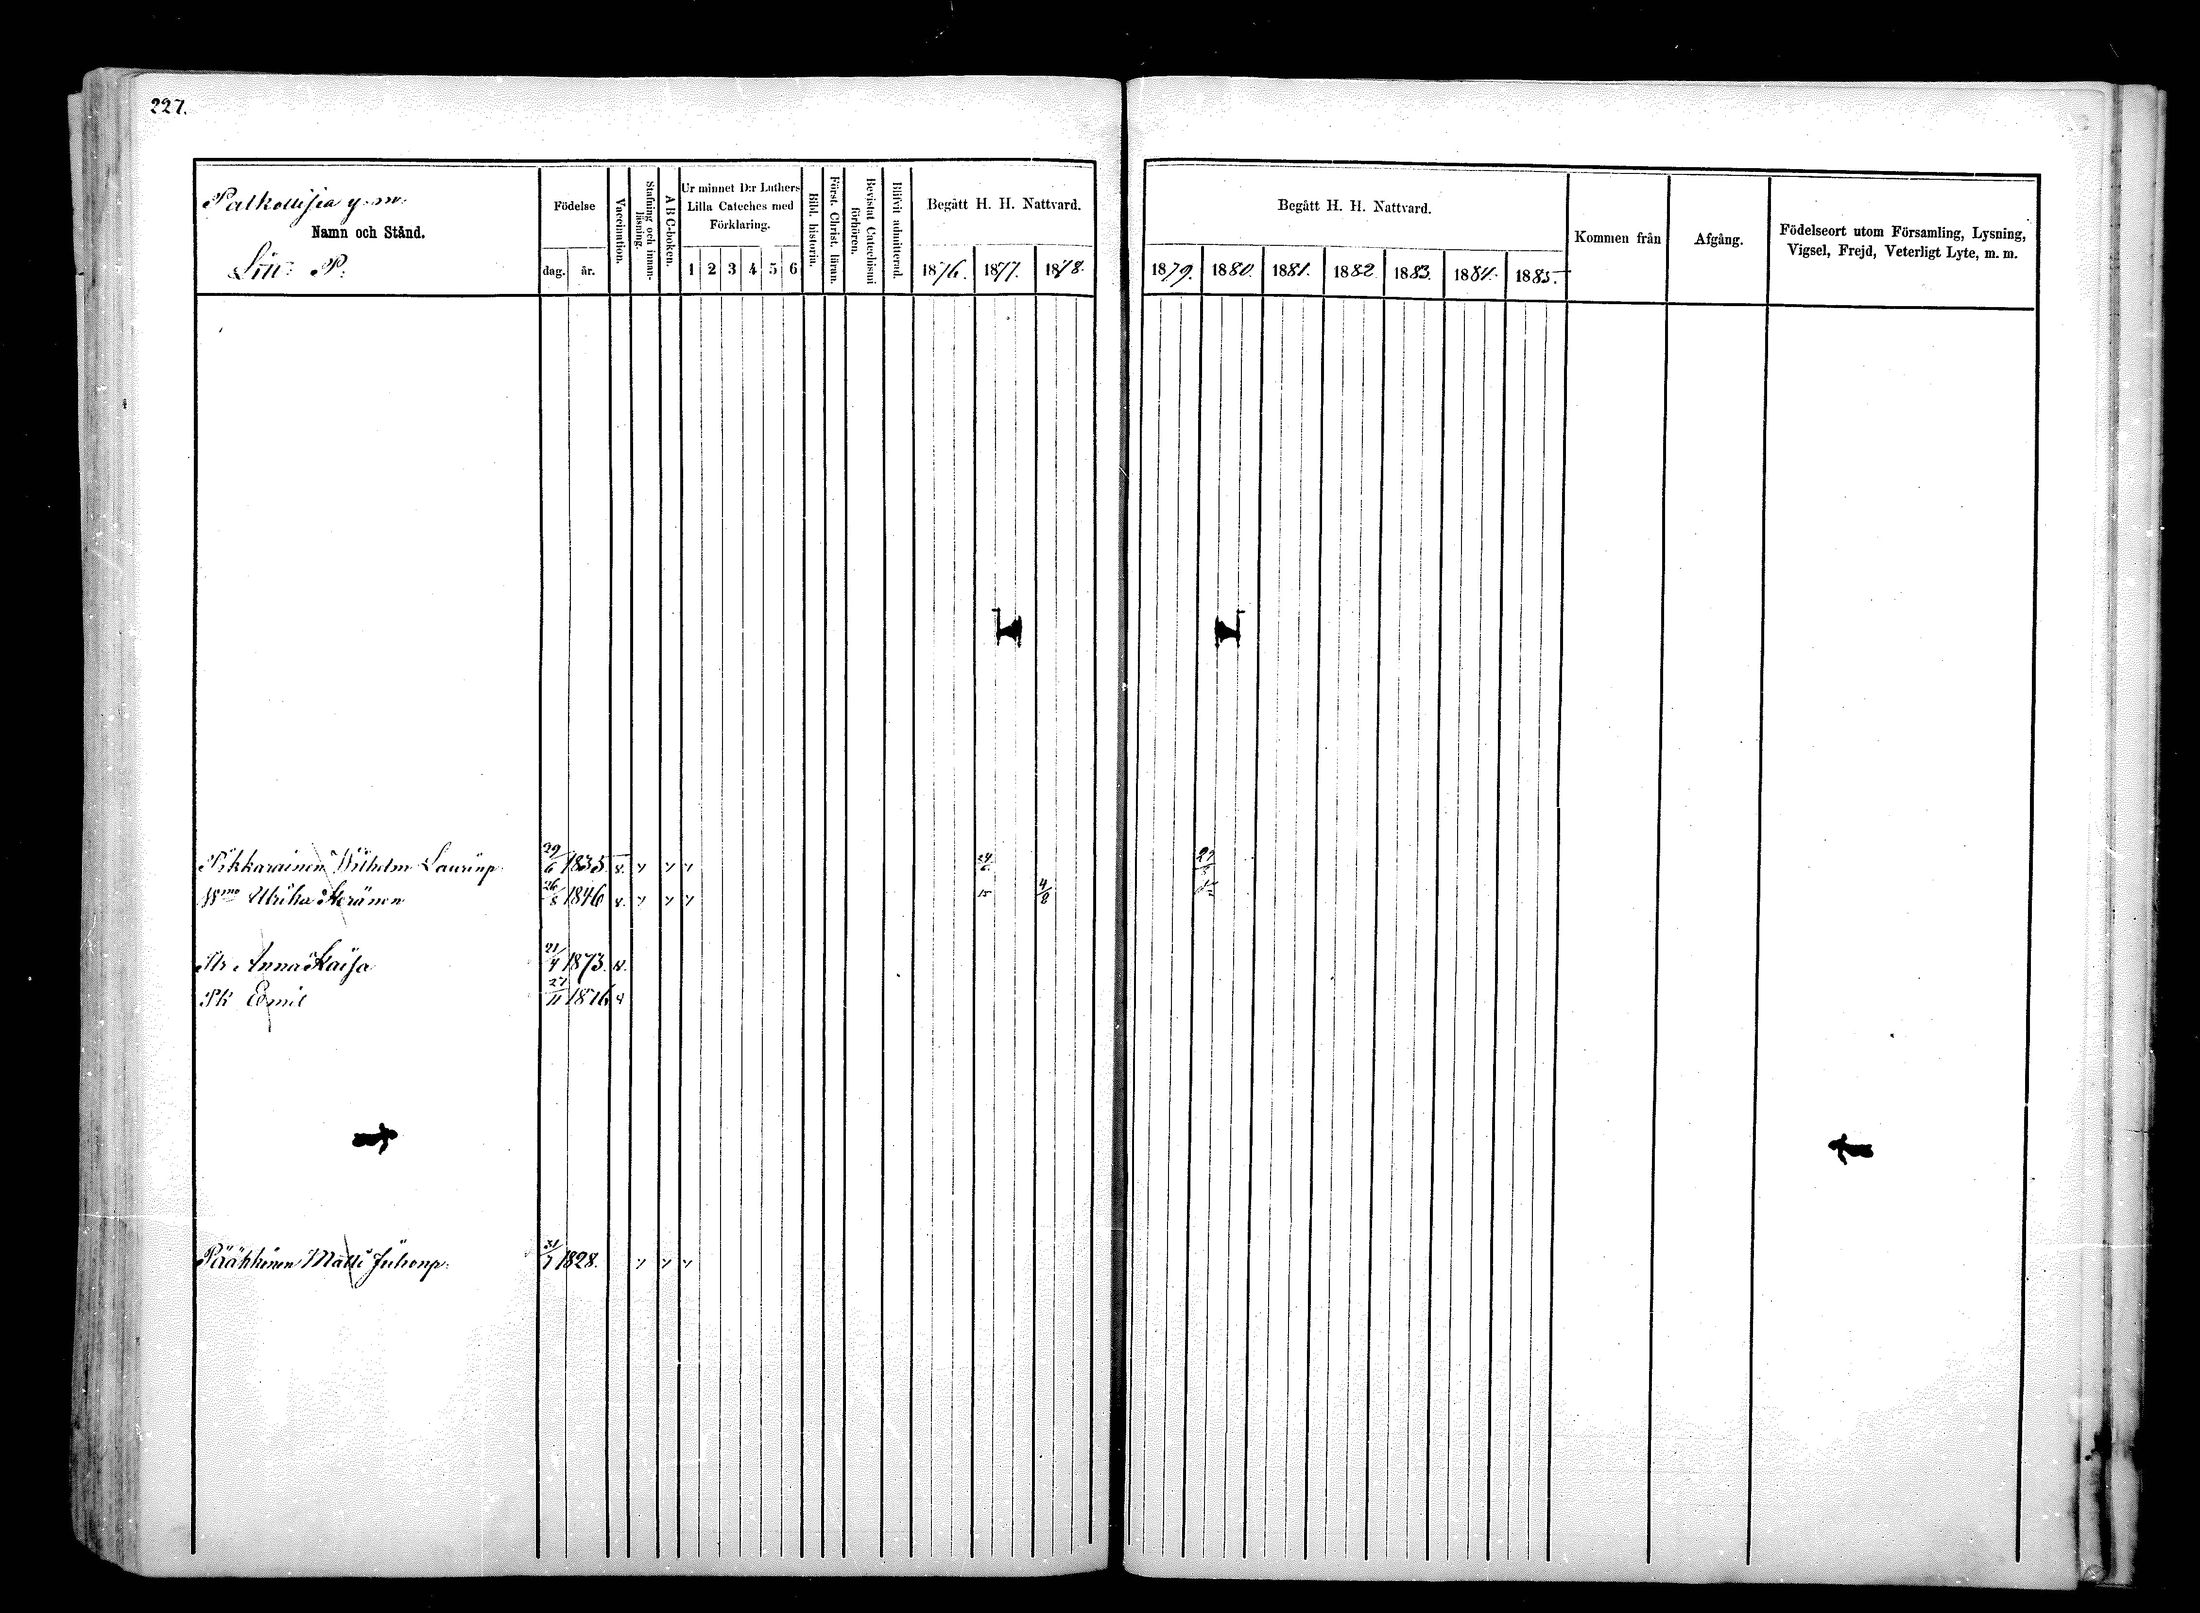 227.
Palkollisia y. m.
Namn och Stånd.
Litt: P:
Födelse
dag. år.
Vaccination.
Stafning och innan-läsning.
ABC-boken.
Ur minnet D:r Luthers
Lilla Cateches med
Förklaring.
1 2 3 4 5 6
Bibl. historia.
Först. Christ. läran.
Bevistat Catechismi förhören.
Blifvit admitterad.
Begått H. H. Nattvard.
1876. 1877. 1878.
Begått H. H. Nattvard.
1879. 1880. 1881. 1882. 1883. 1884. 1885.
Kommen från
Afgång.
Födelseort utom Församling, Lysning,
Vigsel, Frejd, Veterligt Lyte, m. m.
Pikkarainen Wilhelm Laurinp 29/6 1835. v.
Ulrika Keränen 26/8 1846 v. 15 4/8
Tr Anna Kaisa 21/4 1873. v.
Pk Emil 27/11 1876 v
Pääkkönen Matti Juhonp: 31/7 1828.